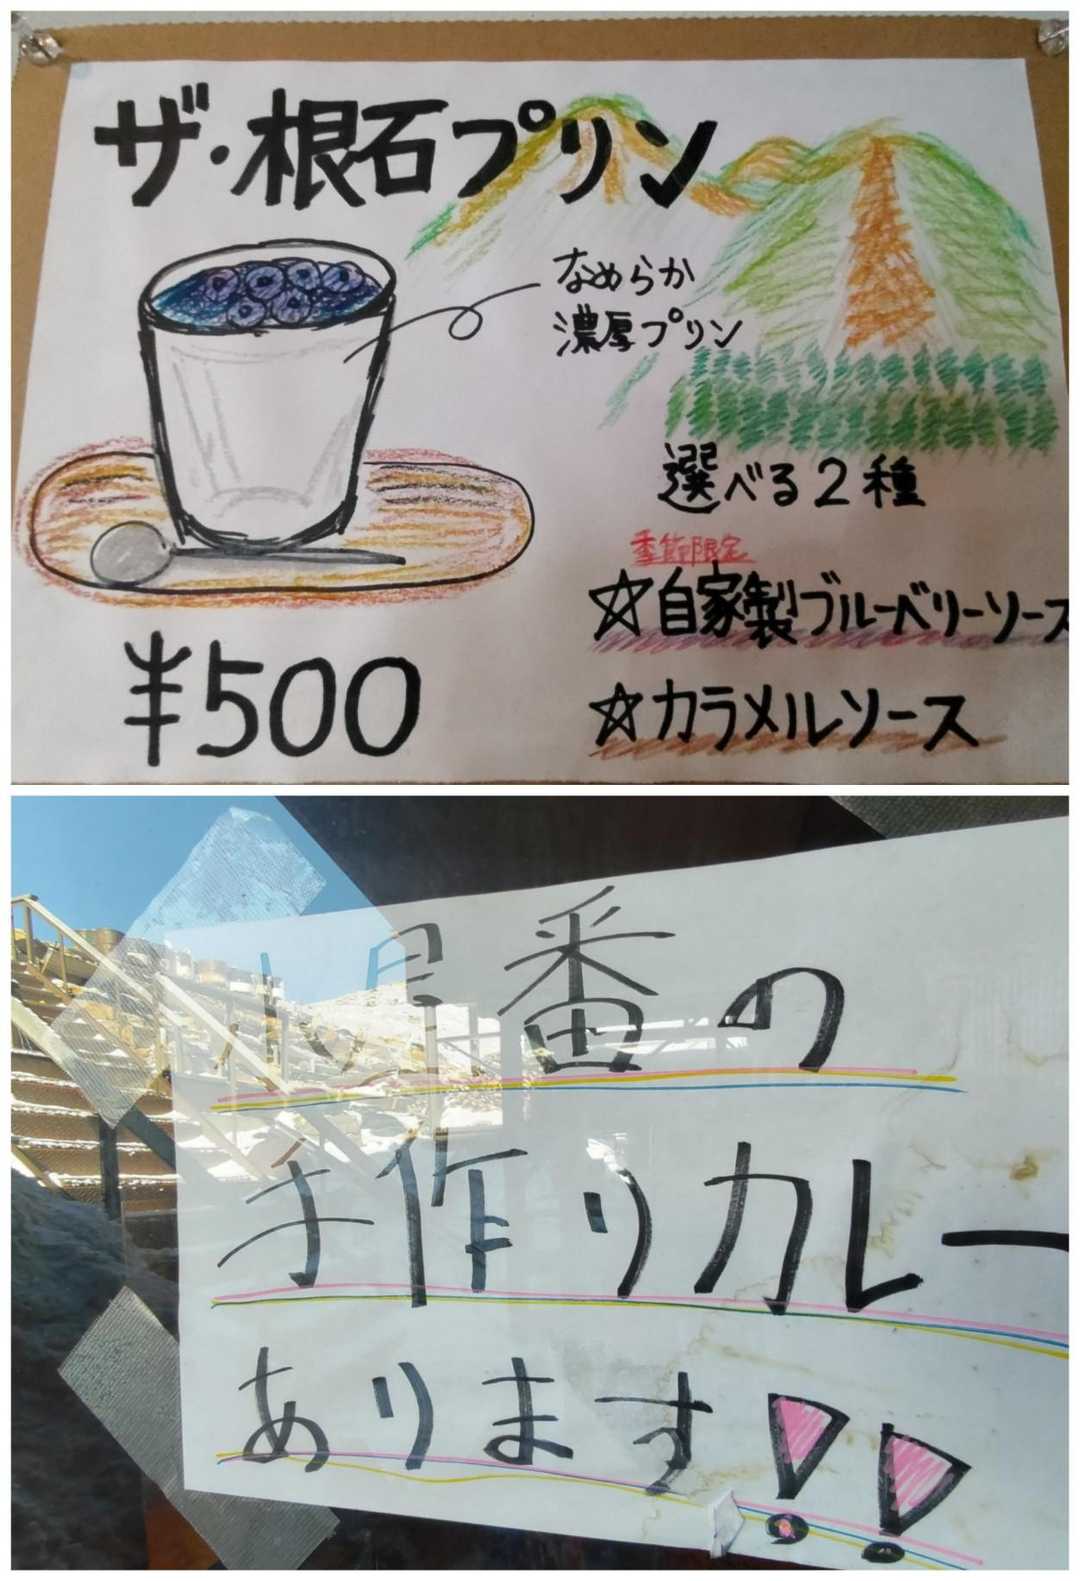 ザ・根石プリン
なめらか
濃厚プリン
選べる2種
季節限定
☆自家製ブルーベリーソース
☆カラメルソース
¥500
小屋番の
手作りカレー
あります!!